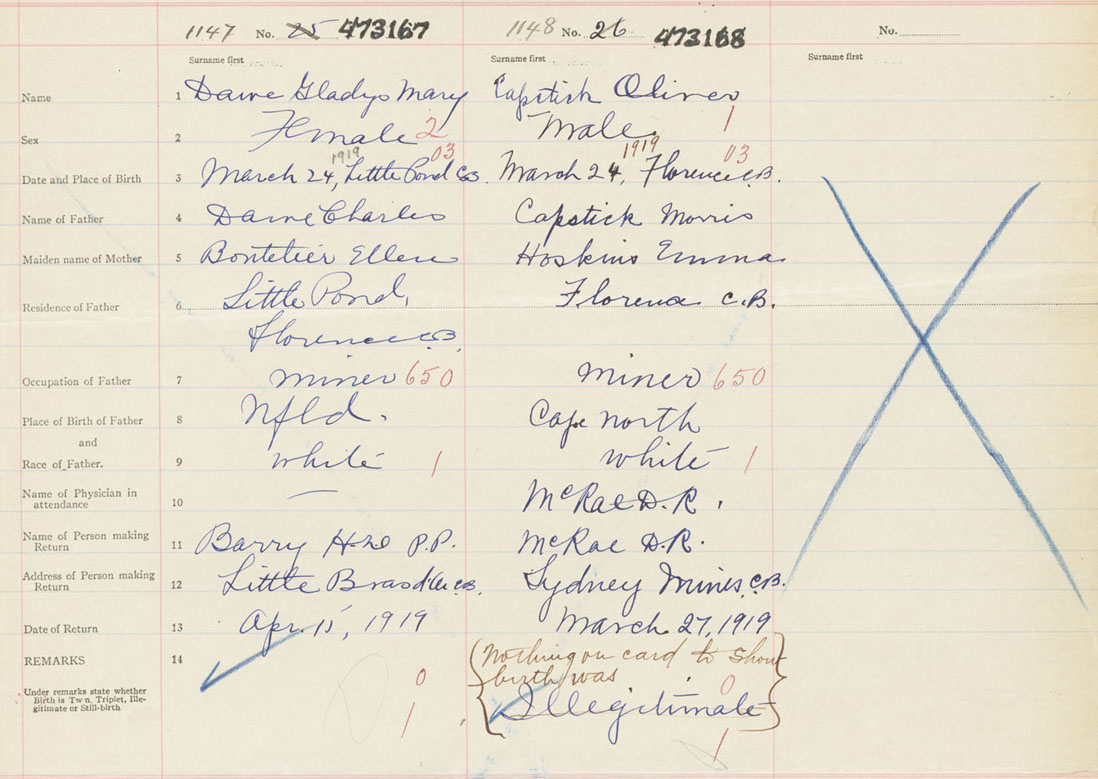 1147 No. 25 473167 1148 No. 26 473168 No.
Surname first Surname first Surname first
Name 1 Dawe Gladys Mary Capstick Oliver
Sex 2 Female 2 Male 1
1919 03 1919 03
Date and Place of Birth 3 March 24, Little Pond C.B. March 24, Florence C.B.
Name of Father 4 Dawe Charles Capstick Morris
Maiden name of Mother 5 Bontelier Ellen Hoskins Emma
Residence of Father 6 Little Pond, Florence C.B.
Florence C.B.
Occupation of Father 7 miner 650 miner 650
Place of Birth of Father 8 Nfld. Cape North
and
Race of Father. 9 white 1 white 1
Name of Physician in
attendance 10 — McRae D.R.
Name of Person making
Return 11 Barry P.P. McRae D.R.
Address of Person making
Return 12 Little Bras d'Or C.B. Sydney Mines, C.B.
Date of Return 13 Apr. 15, 1919 March 27, 1919
REMARKS 14 Nothing on card to show
birth was
Under remarks state whether
Birth is Twin, Triplet, Ille-
gitimate or Still-birth 0 0
Illegitimate
1 1